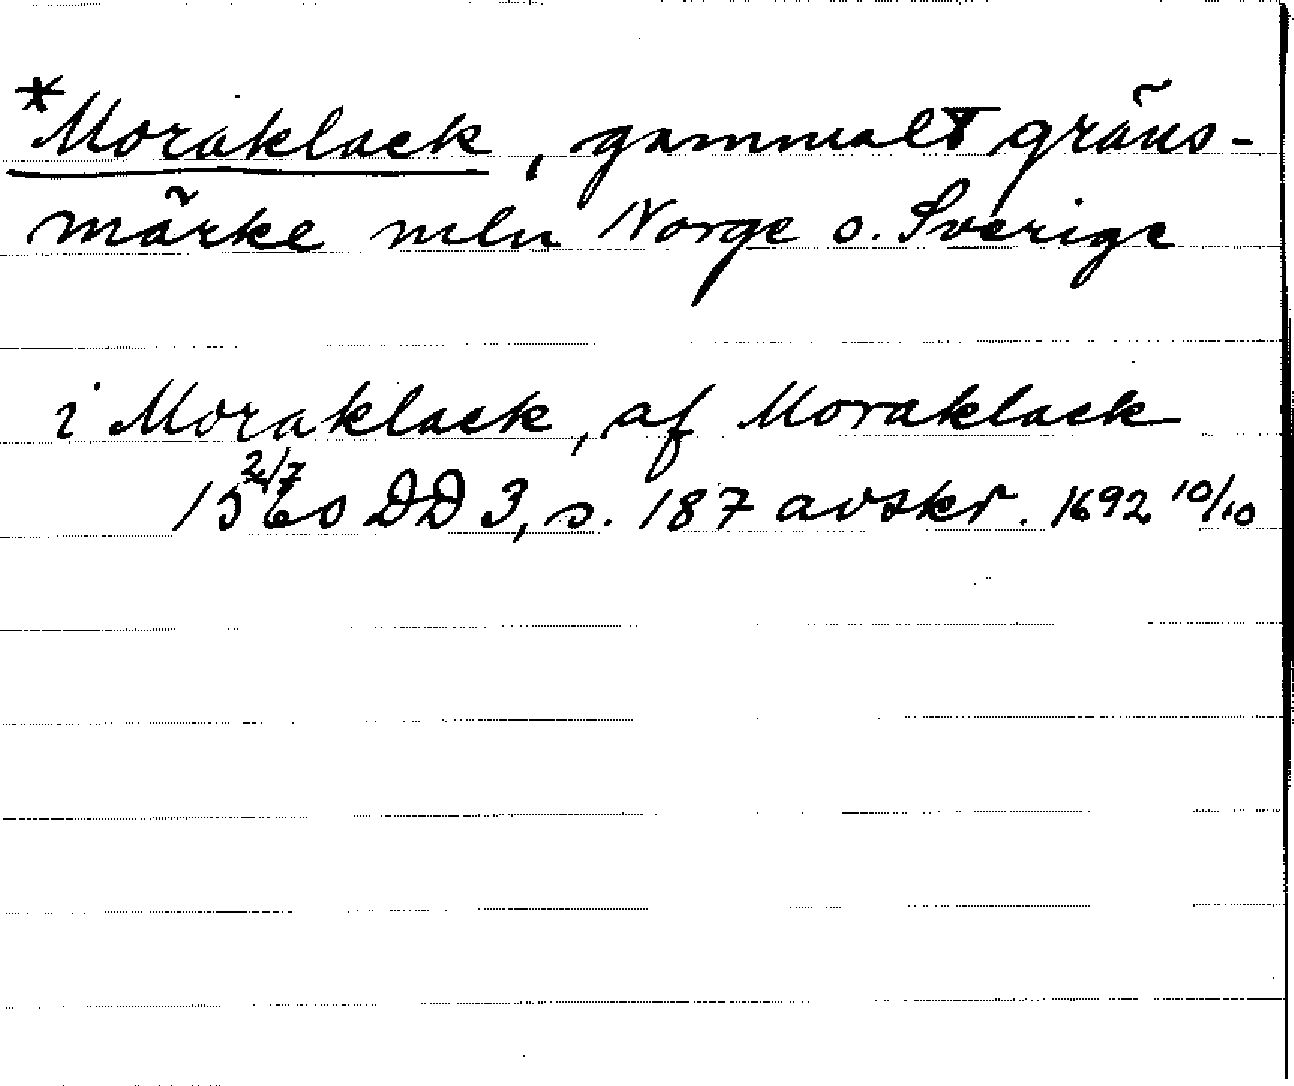 *Moraklack, gammalt gräns-
märke mln Norge o. Sverige
i Moraklack, af Moraklack
1560 2/7 DD 3, s. 187 avskr. 1692 10/10